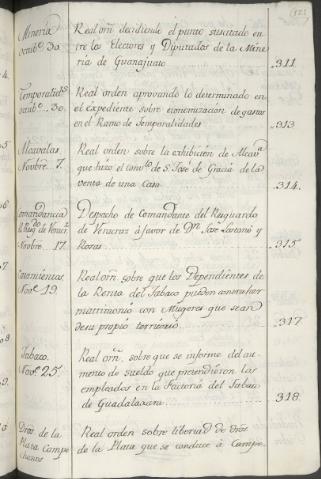 Mineria
Octub.e 30.
Real orn̄. decidiendo el punto suscitado en
tre los Electores y Diputados de la Mine
ria de Guanajuato
311
Temporalid.s
Octub.e 30.
Real orden aprovando lo determinado en
el expediente sobre economizacion de gastos
en el Ramo de Temporalidades
313
Alcavalas
Novbre. 7.
Real orden sobre la exhibicion de Alcav.a
que hizo el comb.to de S. José de Gracia de la
venta de una Casa
314.
Comandancia
Novbre. 17.
Despacho de Comandante del Resguardo
de Veracruz à favor de D.n José Lozano y
Rozas
315
Nov.e 19.
Real orn̄. sobre que los Dependientes de
la Renta del Tabaco puedan contraher
matrimonio con Mugeres que sean
de su propio territorio
317
Tabaco.
Nov.e 25
Real orn̄. sobre que se informe del au
mento de sueldo que pretendieron los
empleados en la Factoria del Tabaco
de Guadalaxara
318.
Dros. de la
Plata Campe
chanos
Real orden sobre libertad de Dros
de la Plata que se conduce à Campe